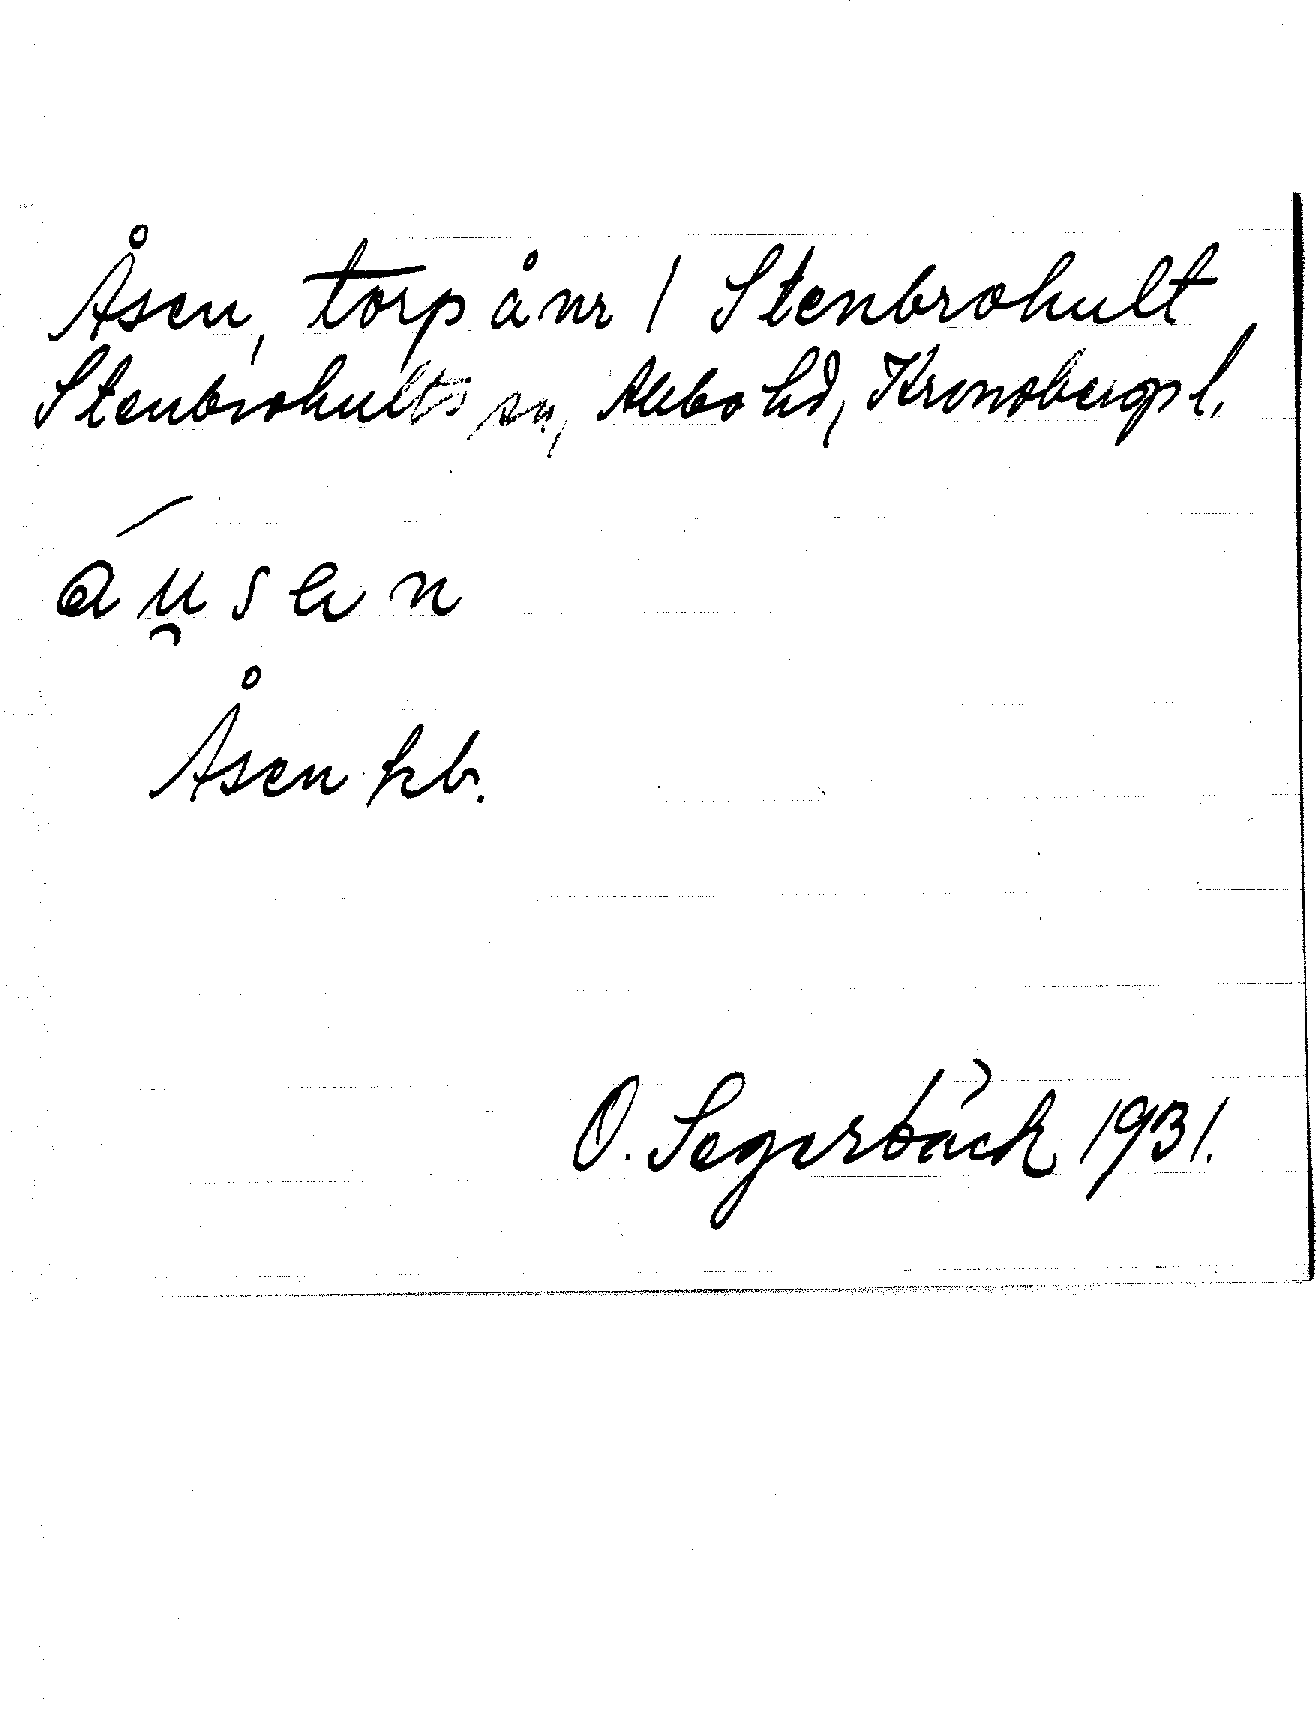 Åsen, torp å nr 1 Stenbrohult
Stenbrohults sn, Allbo hd, Kronobergs l.
áu̯sen
Åsen kb.
O. Segerbäck 1931.